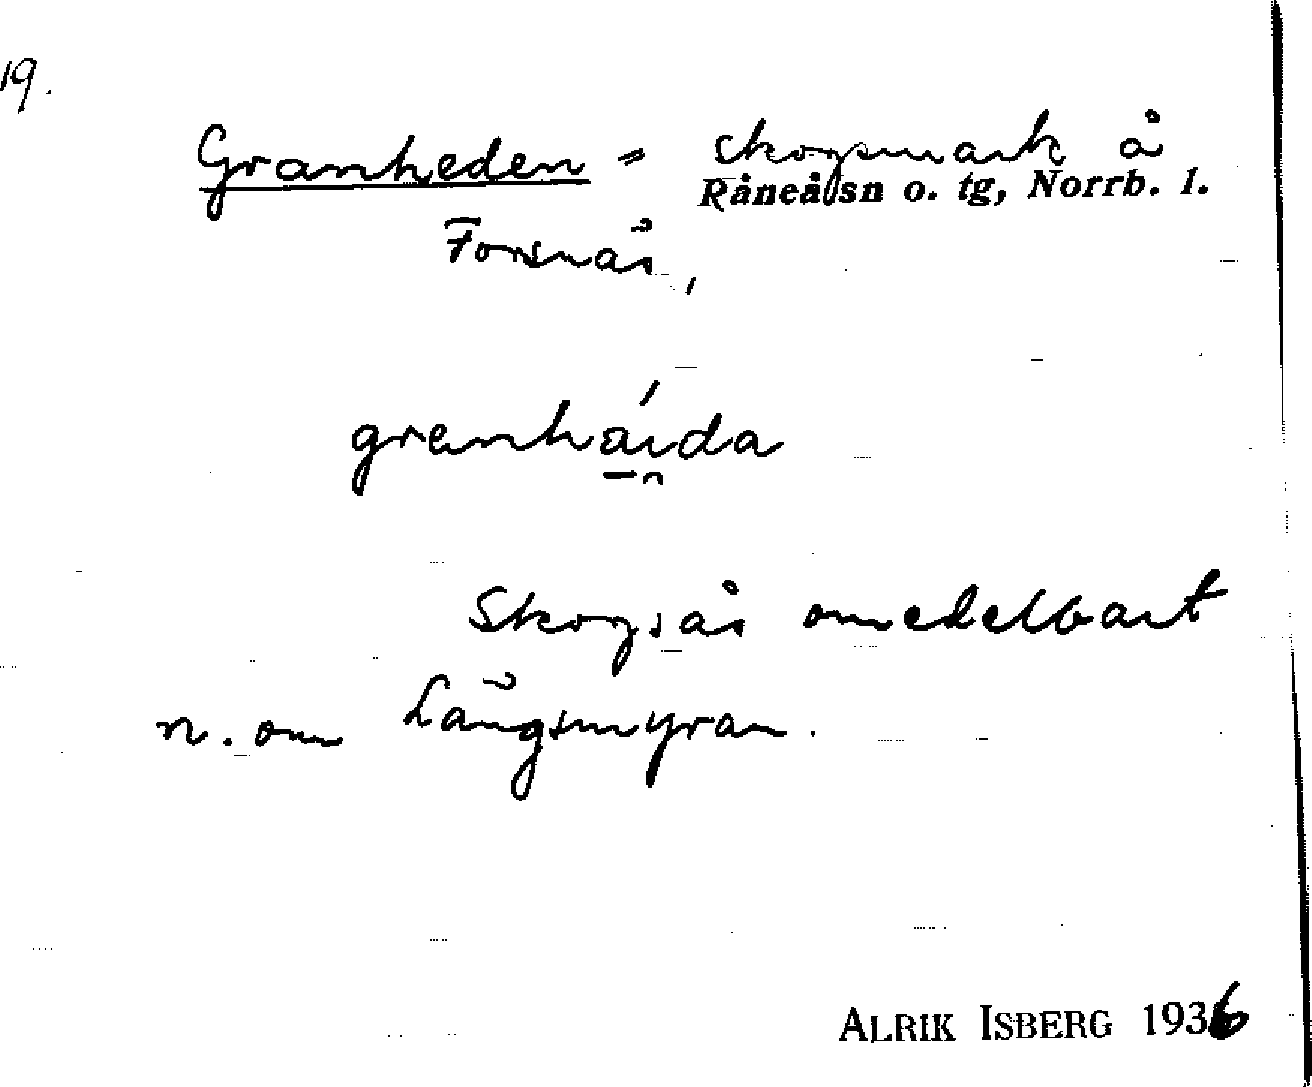 19.
Granheden = skogsmark å
Råneå sn o. tg, Norrb. l.
Forsnäs,
granháı̯da
Skogsås omedelbart
n. om Långsmyran.
ALRIK ISBERG 1936